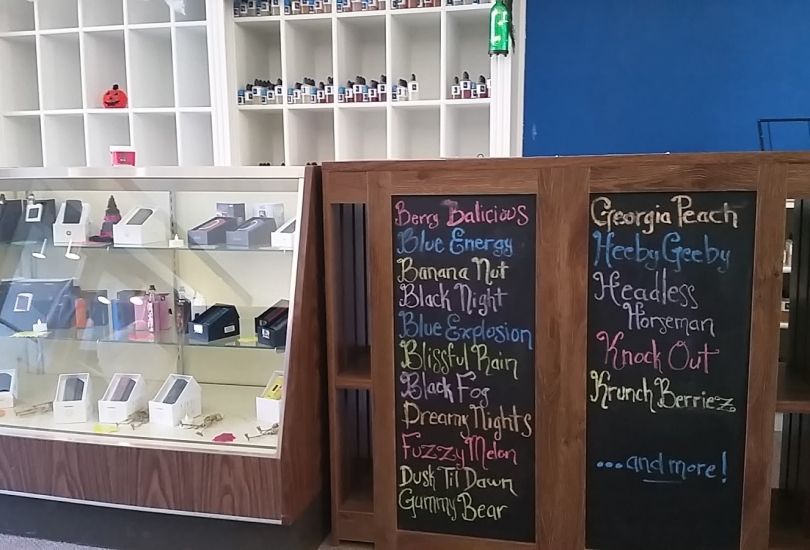 Berry Balicious
Blue Energy
Banana Nut
Black Night
Blue Explosion
Blissful Rain
Black Fog
Dreamy Nights
Fuzzy Melon
Dusk Til Dawn
Gummy Bear
Georgia Peach
Heeby Geeby
Headless
Horseman
Knock Out
Krunch Berriez
...and more!